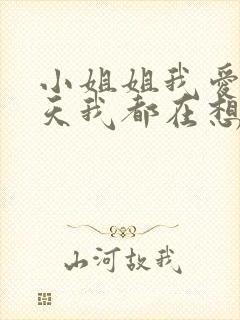 小姐姐我爱
天我都在想
山河故我